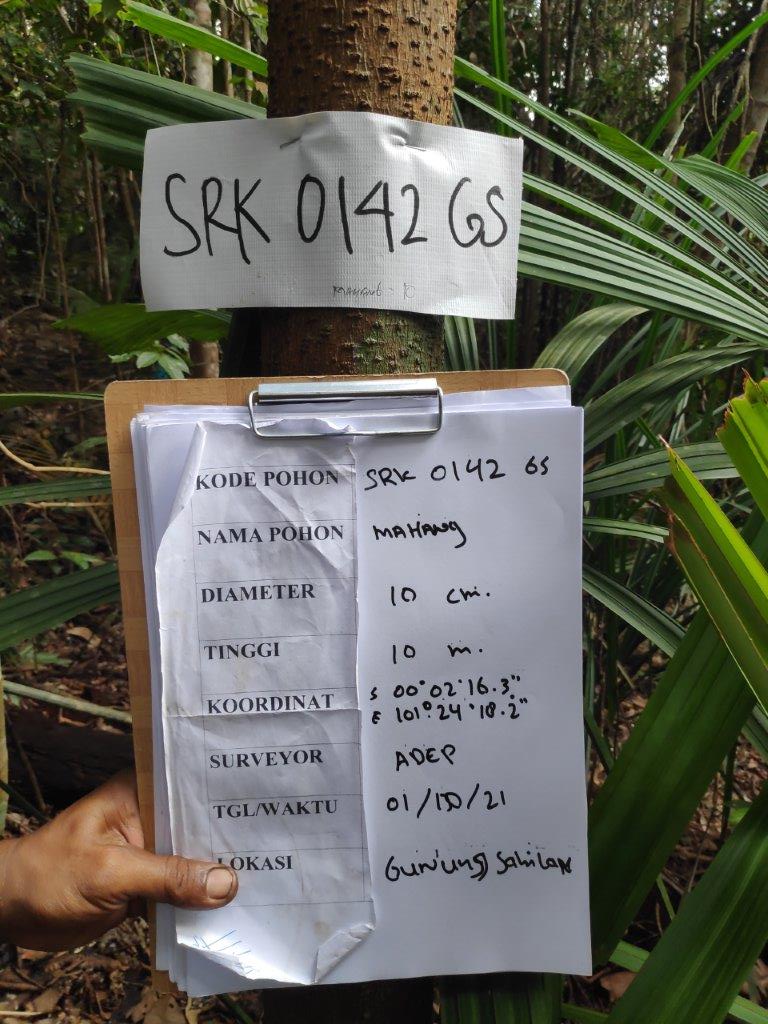 SRK 0142 GS
MAHANG - 10
KODE POHON SRK 0142 GS
NAMA POHON MAHANG
DIAMETER 10 cm.
TINGGI 10 m.
KOORDINAT S 00°02'16.3"
E 101°24'18.2"
SURVEYOR ADEP
TGL/WAKTU 01/10/21
LOKASI Gunung Sahilan